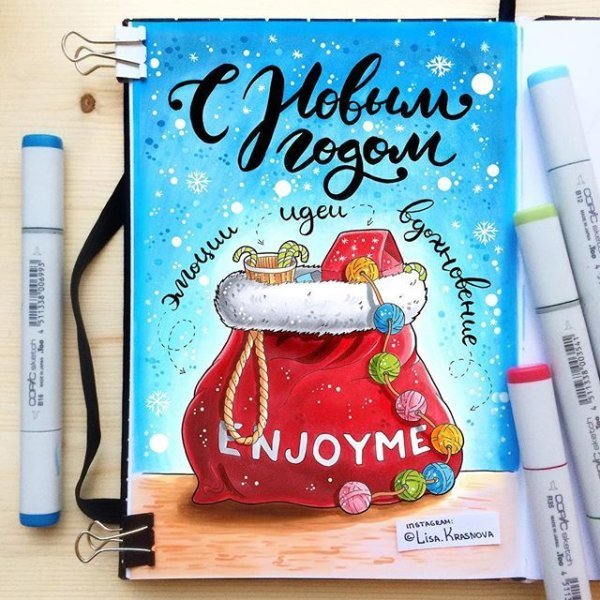 С Новым
годом
эмоции
идеи
вдохновение
ENJOYME
INSTAGRAM:
©LISA.KRASNOVA
COPIC sketch
B16
COPIC sketch
B12
COPIC sketch
COPIC sketch